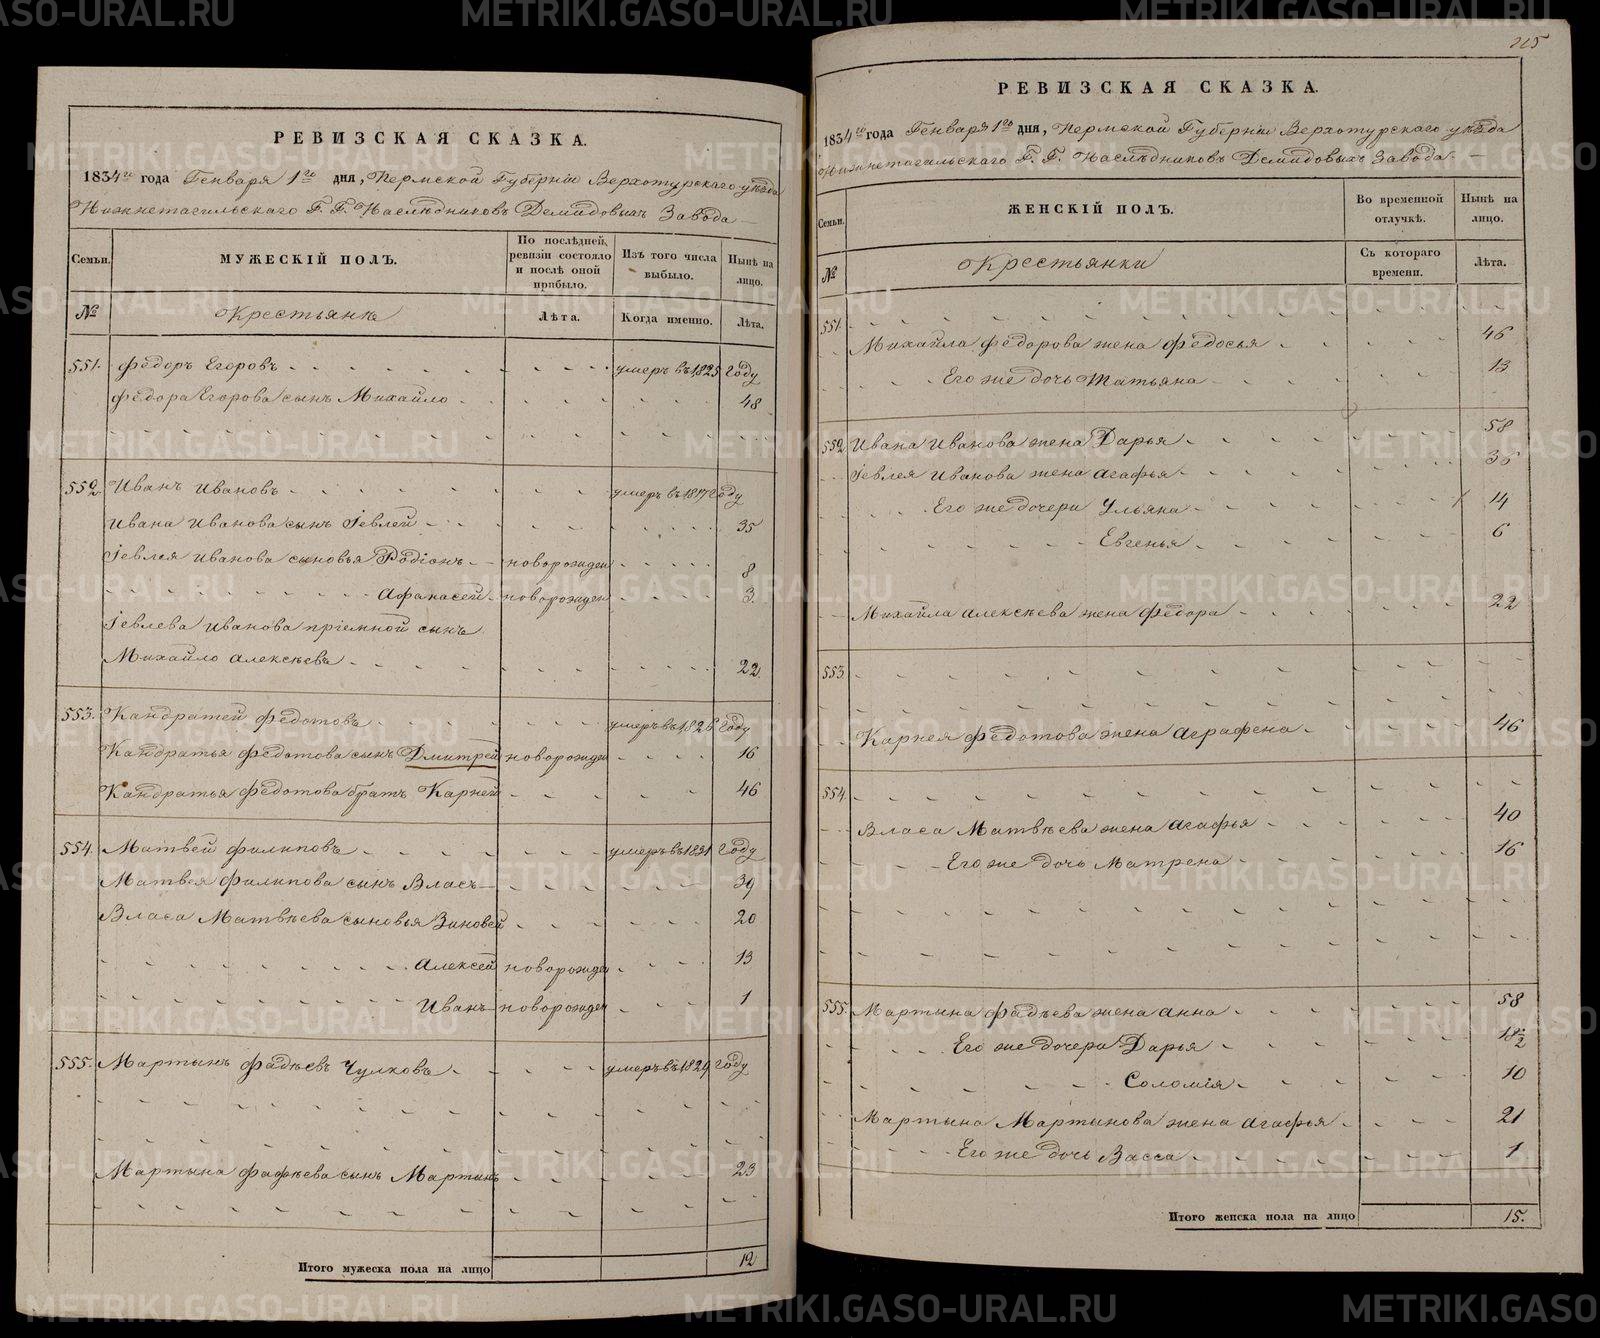 РЕВИЗСКАЯ СКАЗКА.
1834го года Генваря 1го дня, Пермской Губернiи Верхотурскаго уѣзда
Нижнетагильскаго Г. Г. Наслѣдниковъ Демидовыхъ Завода
Семьи. МУЖЕСКIЙ ПОЛЪ. По послѣдней ревизiи состояло и послѣ оной прибыло. Изъ того числа выбыло. Нынѣ на лицо.
№ Крестьяне Лѣта. Когда именно. Лѣта.
551. Федоръ Егоровъ умеръ въ 1825 Году
Федора Егорова сынъ Михайло 48
552 Иванъ Ивановъ умеръ въ 1817 Году
Ивана Иванова сынъ Iевлей 35
Iевлея Иванова сыновья Родiонъ новорожден 8
Афанасей новорожден 3.
Iевлева Иванова прiемной сынъ
Михайло Алексѣевъ 22.
553. Кандратей Федотовъ умеръ въ 1826 Году
Кандратья Федотова сынъ Дмитрей новорожден 16
Кандратья Федотова братъ Карней 46
554. Матвей Филиповъ умеръ въ 1831 Году
Матвея Филипова сынъ Власъ 39
Власа Матвѣева сыновья Зиновей 20
Алексей новорожден 13
Иванъ новорожден 1
555. Мартынъ Фадѣевъ Чулковъ умеръ въ 1829 Году
Мартына Фадѣева сынъ Мартынъ 23
Итого мужеска пола на лицо 12
215
РЕВИЗСКАЯ СКАЗКА.
1834го года Генваря 1го дня, Пермской Губернiи Верхотурскаго уѣзда
Нижнетагильскаго Г. Г. Наслѣдниковъ Демидовыхъ Завода
Семьи. ЖЕНСКIЙ ПОЛЪ. Во временной отлучкѣ. Нынѣ на лицо.
№ Крестьянки Съ котораго времени. Лѣта.
551.
Михайла Федорова жена Федосья 46
Его же дочь Татьяна 13
552 Ивана Иванова жена Дарья 58
Iевлея Иванова жена Агафья 36
Его же дочери Ульяна 14
Евгенья 6
Михайла Алексѣева жена Федора 22
553.
Карнея Федотова жена Аграфена 46
554.
Власа Матвѣева жена Агафья 40
Его же дочь Матрена 16
555. Мартына Фадѣева жена Анна 58
Его же дочери Дарья 18½
Соломiя 10
Мартына Мартынова жена Агафья 21
Его же дочь Васса 1
Итого женска пола на лицо 15.
METRIKI.GASO-URAL.RU